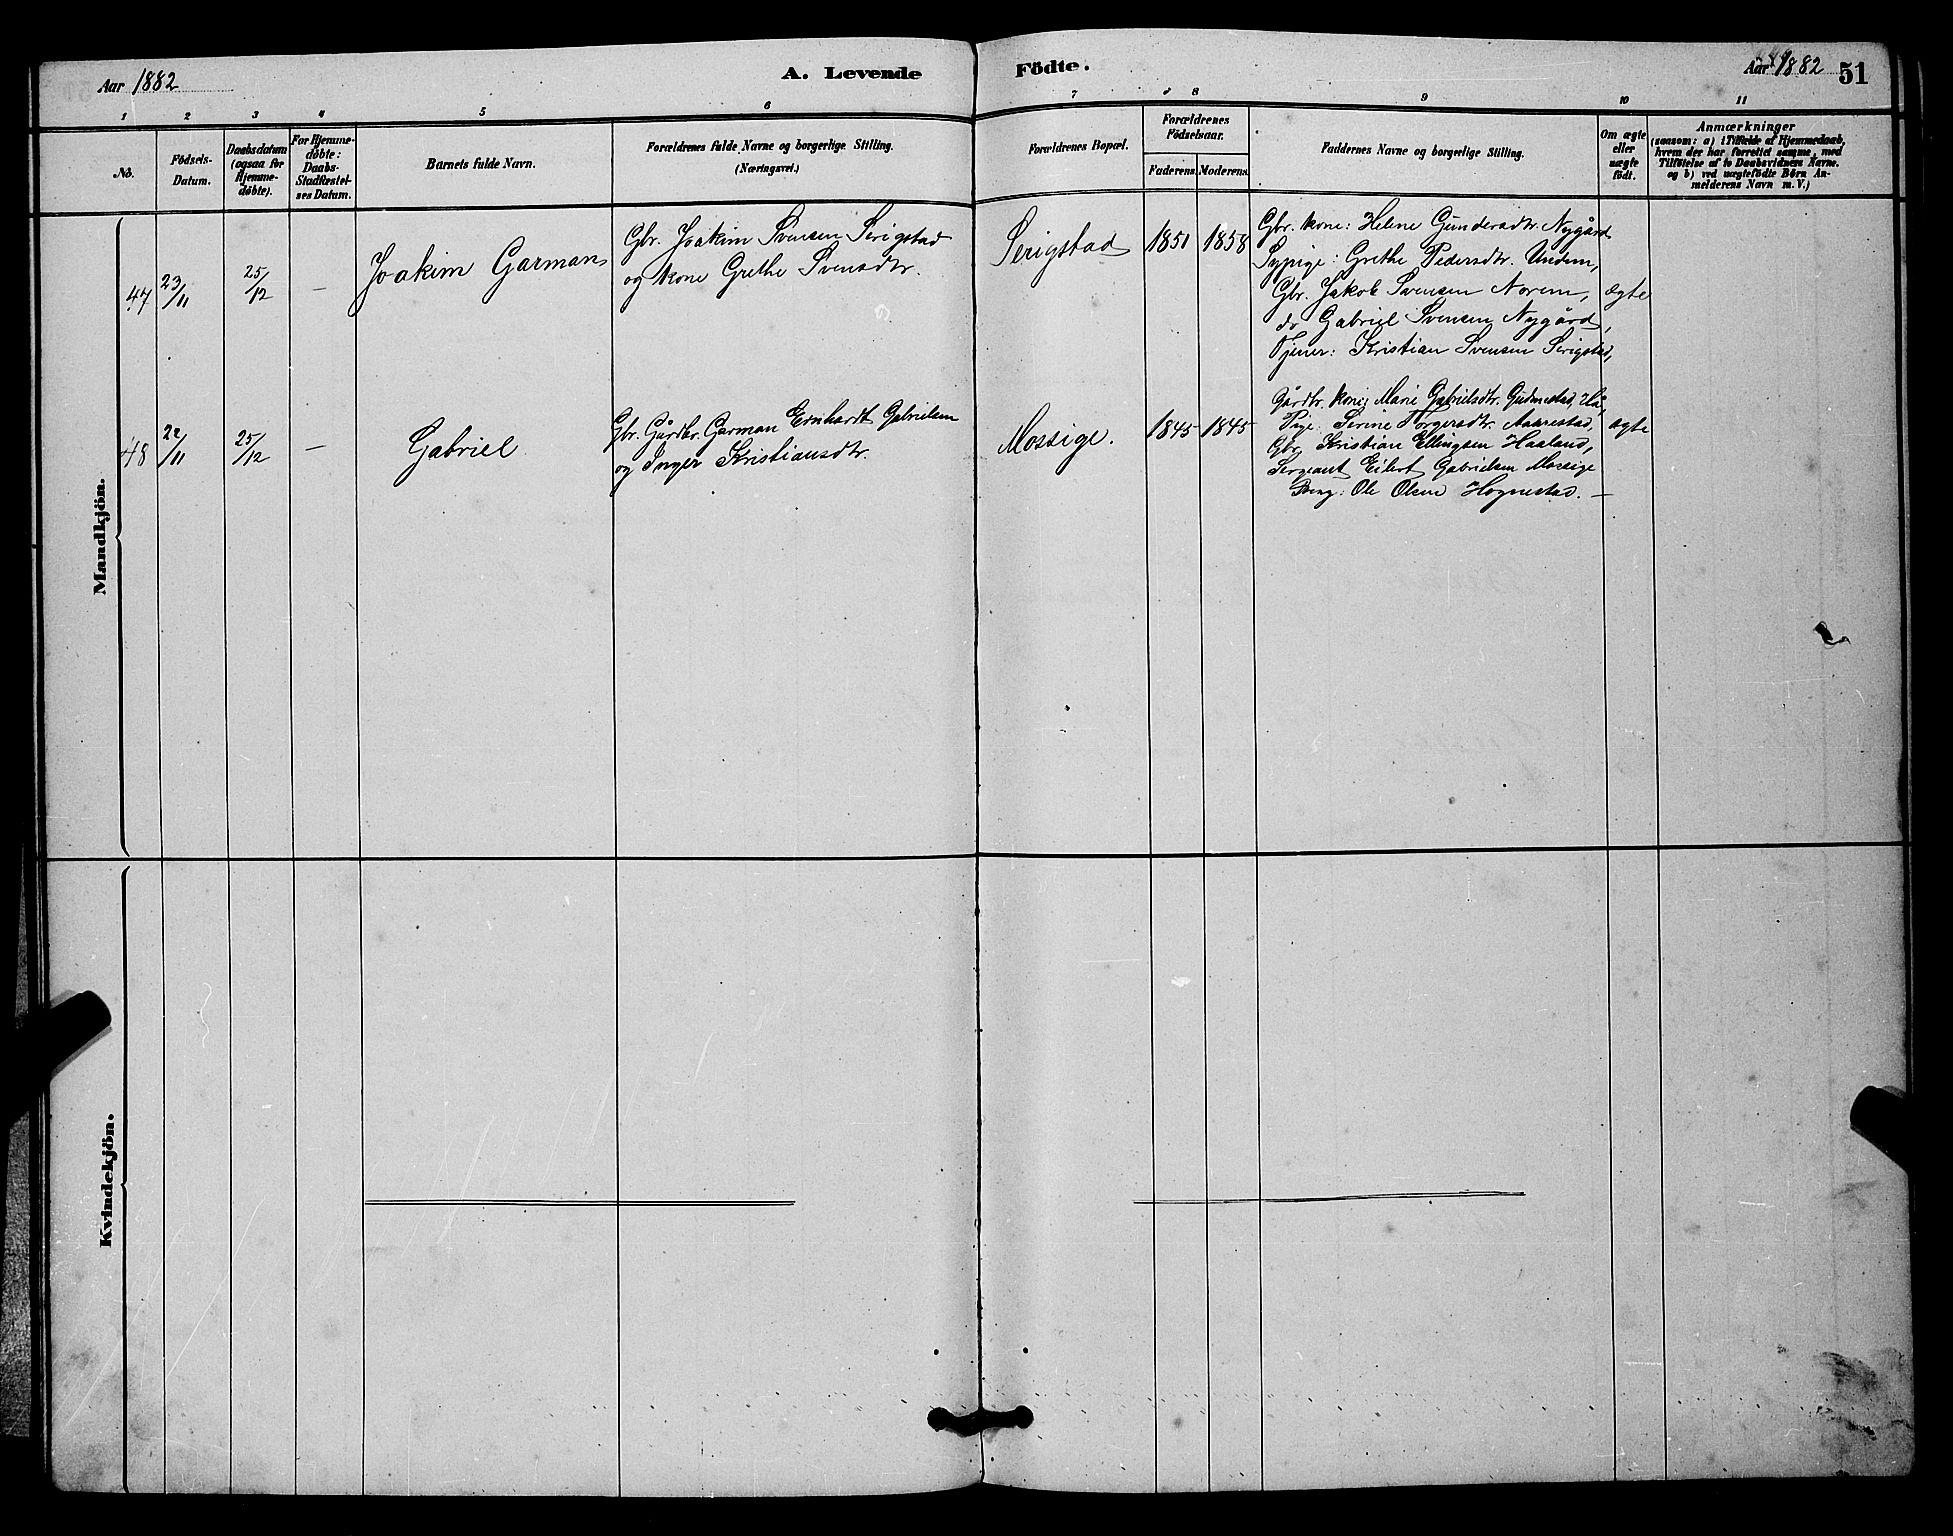 Aar 1882
A. Levende
Födte.
Aar 1882
51
1 2 3 4 5 6 7 8 9 10 11
No.
Födsels-
Datum.
Daabsdatum
(ogsaa for
Hjemme-
døbte).
For Hjemme-
døbte:
Daabs-
Stadfæstel-
ses Datum.
Barnets fulde Navn.
Forældrenes fulde Navne og borgerlige Stilling.
(Næringsvei.)
Forældrenes Bopæl.
Forældrenes
Födselsaar.
Faderens. Moderens.
Faddernes Navne og borgerlige Stilling.
Om ægte
eller
uægte
født.
Anmærkninger
(saasom: a) i Tilfælde af Hjemmedaab,
hvem der har forrettet samme, med
Tilføielse af to Daabsvidners Navne.
og b) ved uægtefødte Börn An-
melderens Navn m. V.)
Mandkjön.
47 23/11 25/12 — Joakim Garman
Gbr. Joakim Svensen Serigstad
og kone Grethe Svensdtr.
Serigstad 1851 1858
Gbr. kone: Helene Gundersdtr. Nygård
Sypige: Grethe Pedersdtr. Undem,
Gbr. Jakob Svensen Norem,
do Gabriel Svensen Nygård,
Tjener: Kristian Svensen Serigstad,
ægte
48 22/11 25/12 — Gabriel
Gbr. Gårdbr. Garman Ernhardt Gabrielsen
og Inger Kristiansdtr.
Mossige. 1845 1845
Gårdbr. kone: Marie Gabrielsdtr. Gudmestad, Hå,
Pige: Serine Torgersdtr. Aarrestad,
Gbr. Kristian Ellingsen Haaland,
Sergeant Eilert Gabrielsen Mossige
Ole Olsen Hognestad. —
ægte
Kvindekjön.